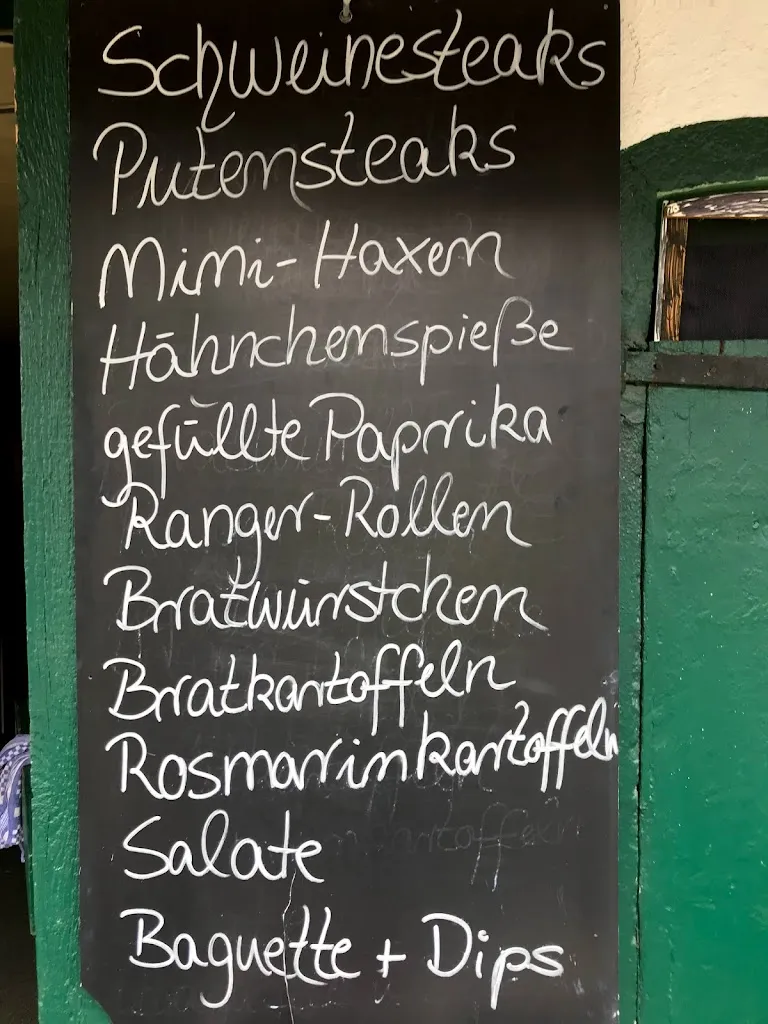 Schweinesteaks
Putensteaks
Mini-Haxen
Hähnchenspieße
gefüllte Paprika
Ranger-Rollen
Bratwürstchen
Bratkartoffeln
Rosmarinkartoffeln
Salate
Baguette + Dips